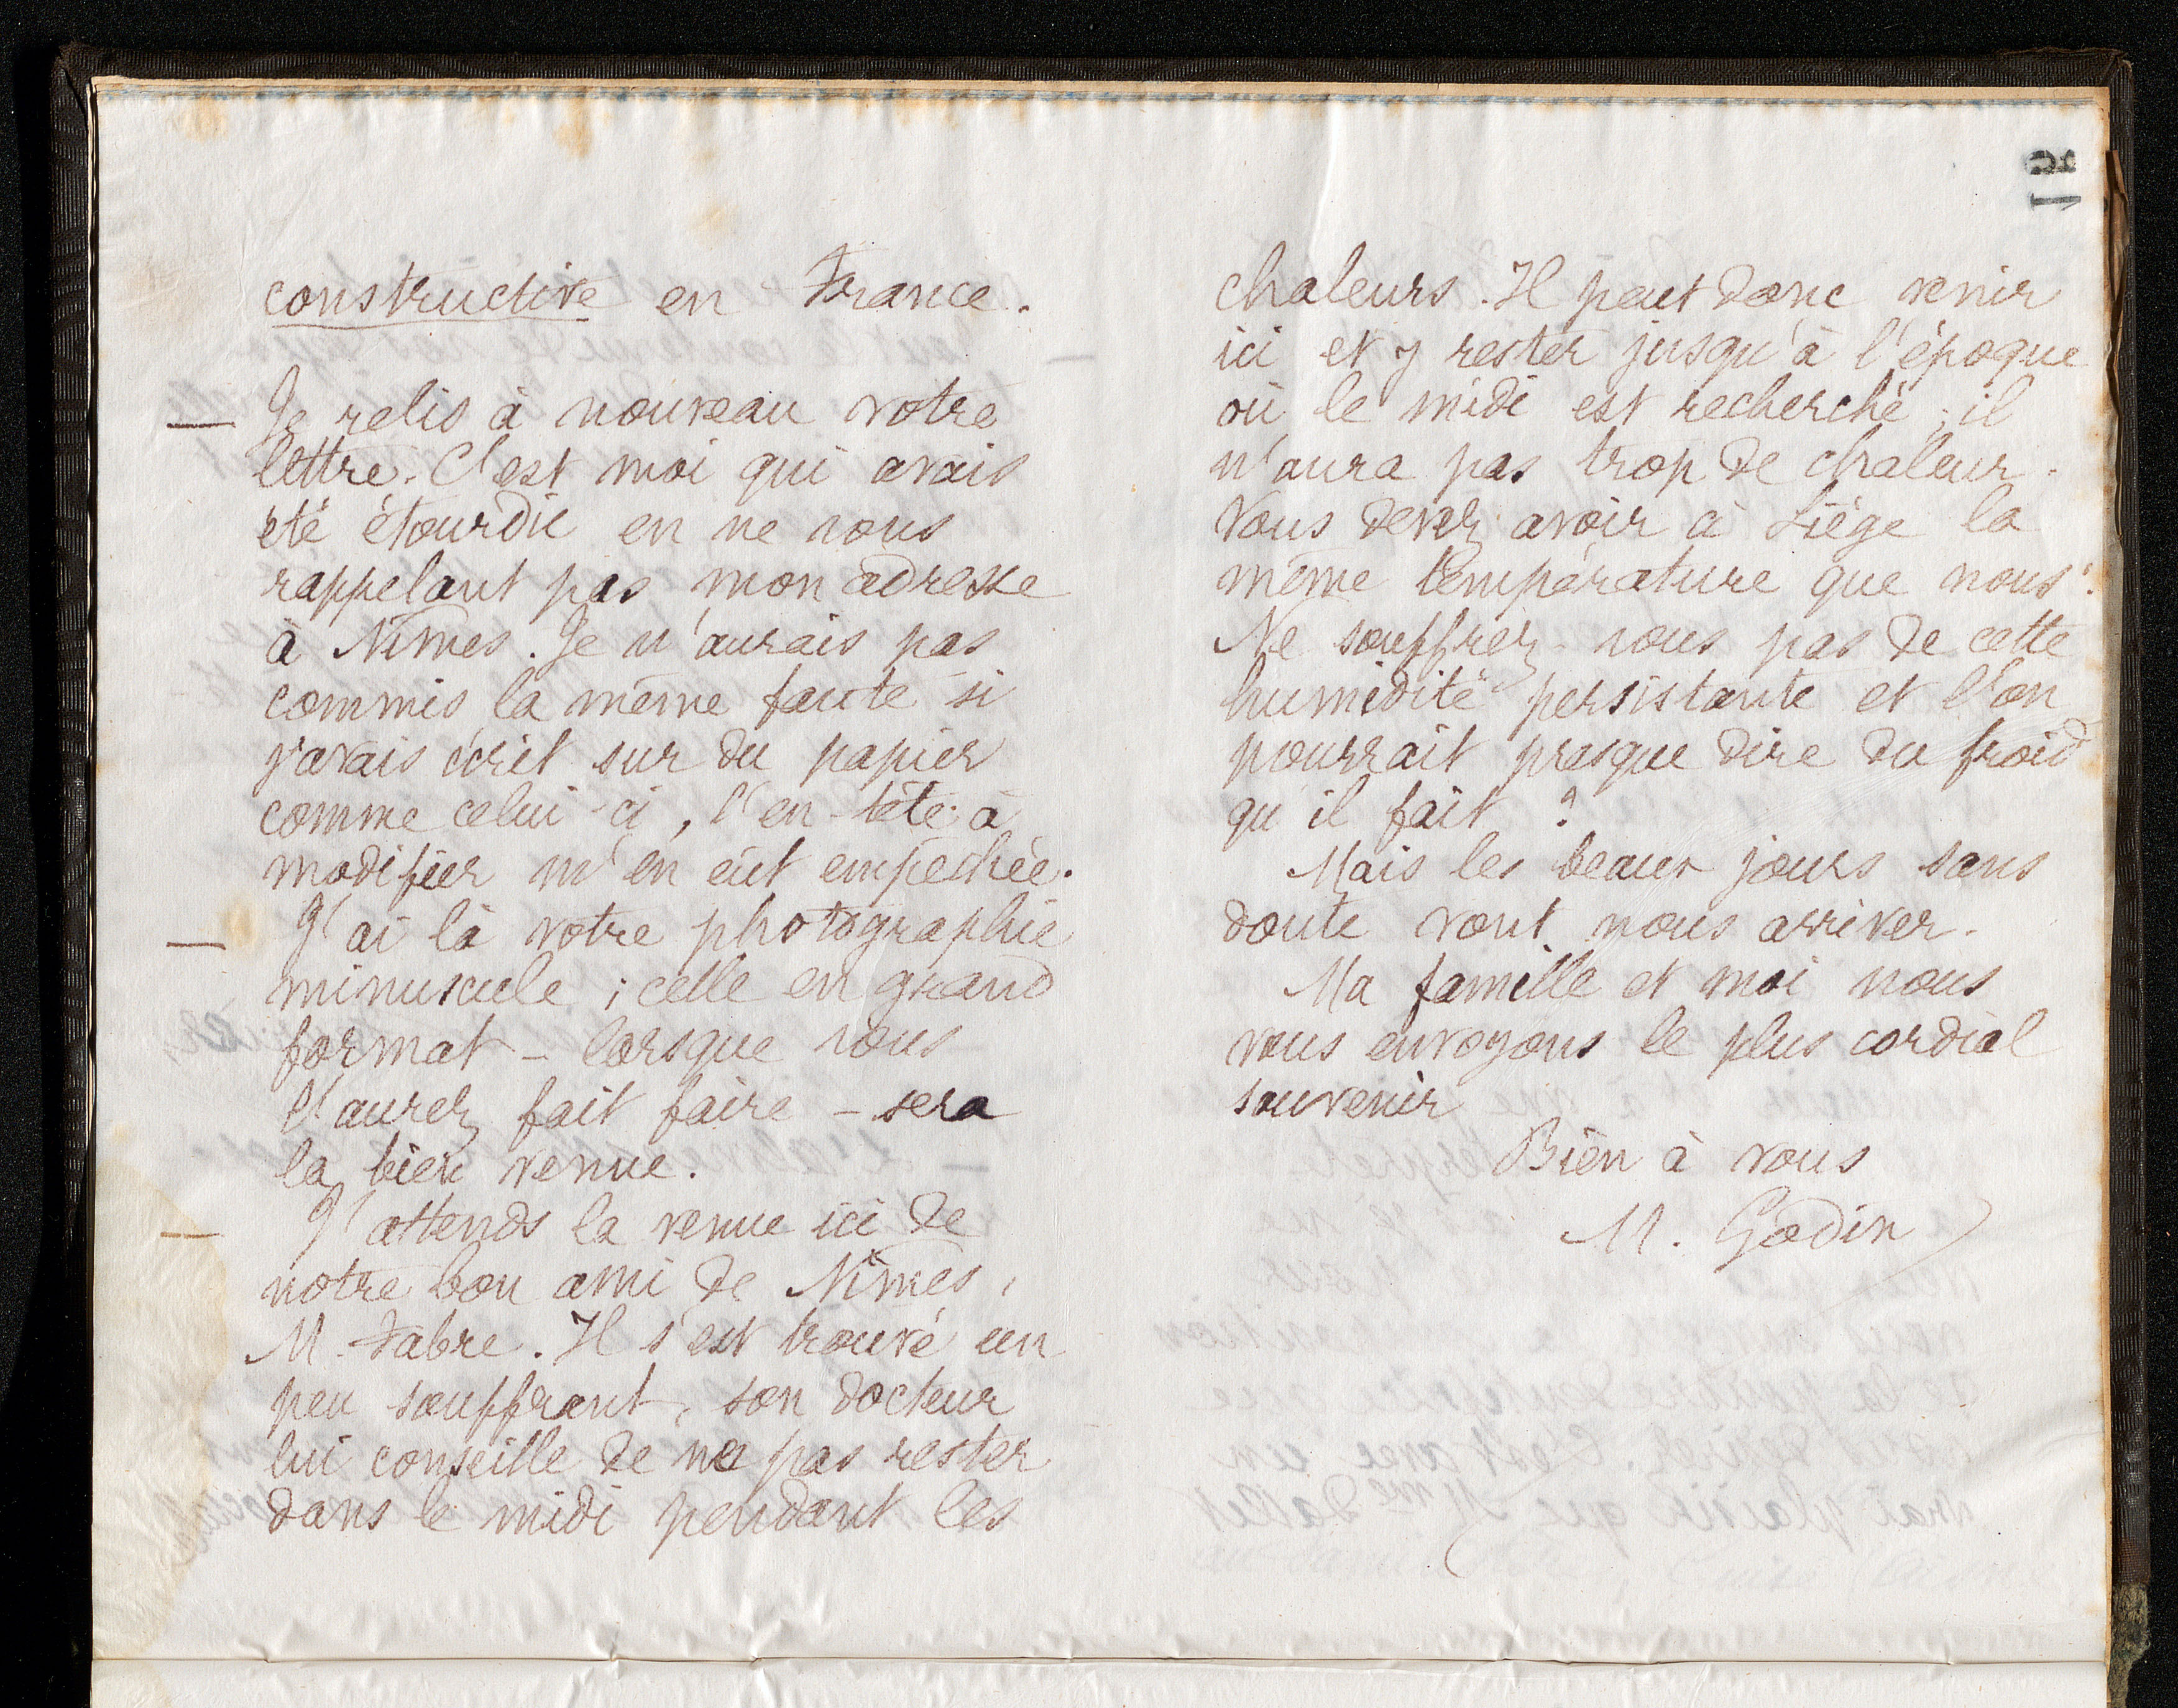 constructive en France.
— Je relis à nouveau votre
lettre. C'est moi qui avais
été étourdie en ne vous
rappelant pas mon adresse
à Nîmes. Je n'aurais pas
commis la même faute si
j'avais écrit sur du papier
comme celui-ci, l'en-tête à
modifier m'en eût empêchée.
— J'ai là votre photographie
minuscule ; celle en grand
format – lorsque vous
l'aurez fait faire – sera
la bien venue.
— J'attends la venue ici de
notre bon ami de Nîmes,
M. Fabre. Il s'est trouvé un
peu souffrant, son docteur
lui conseille de ne pas rester
dans le midi pendant les
chaleurs. Il peut donc venir
ici et y rester jusqu'à l'époque
où le midi est recherché ; il
n'aura pas trop de chaleur.
Vous devez avoir à Liège la
même température que nous.
Ne souffrez-vous pas de cette
humidité persistante et l'on
pourrait presque dire du froid
qu'il fait ?
Mais les beaux jours sans
doute vont nous arriver.
Ma famille et moi nous
vous envoyons le plus cordial
souvenir
Bien à vous
M. Godin